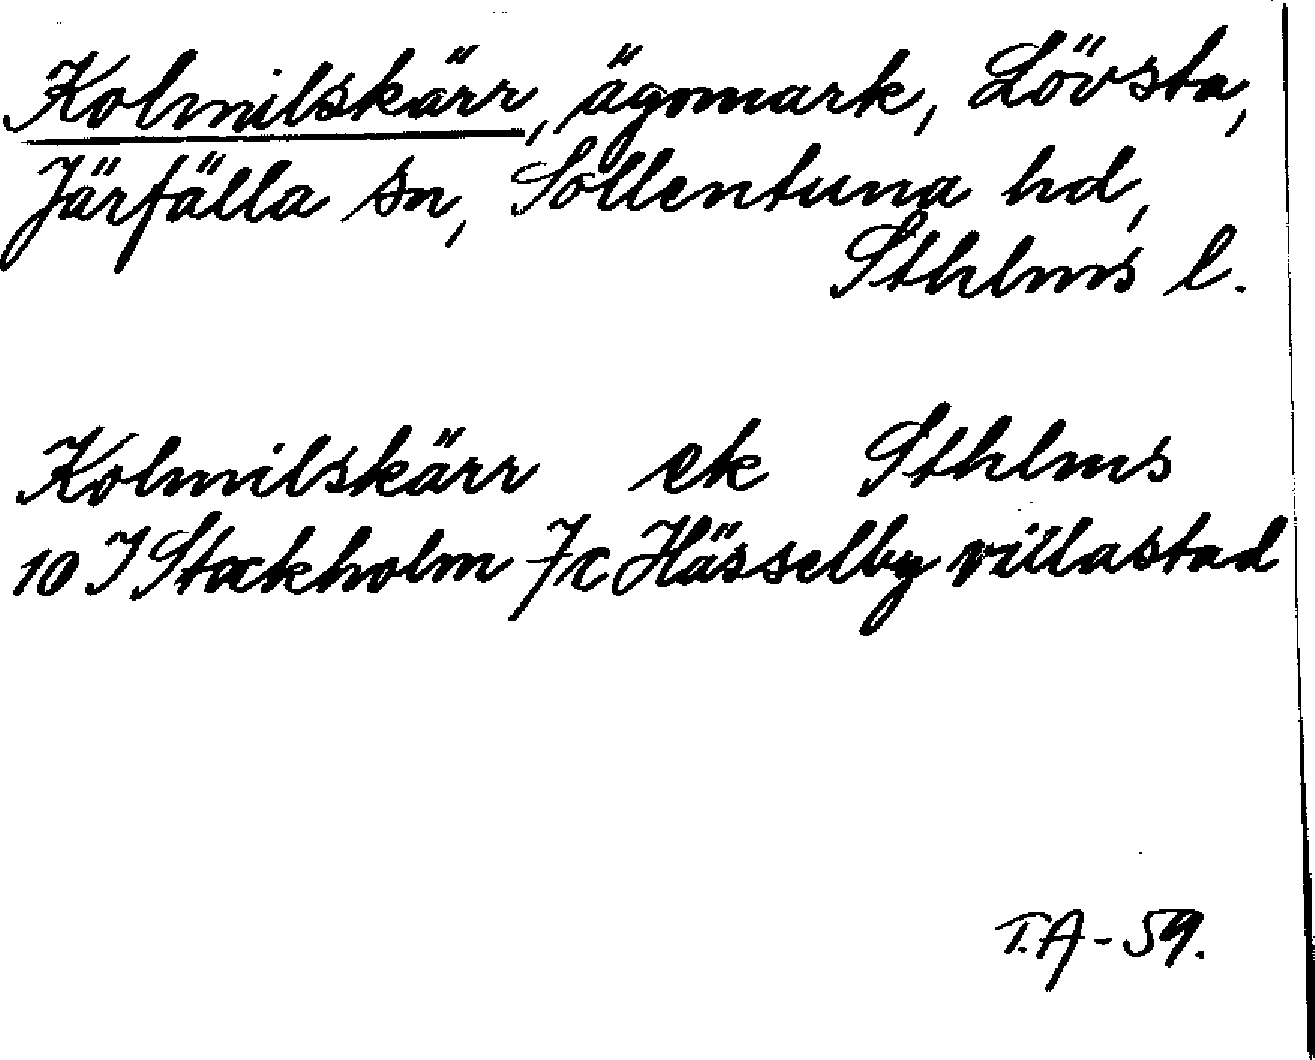 Kolmilskärr, ägomark, Lövsta,
Järfälla sn, Sollentuna hd,
Sthlms l.
Kolmilskärr ek Sthlms
10 I Stockholm 7c Hässelby villastad
T.A-59.